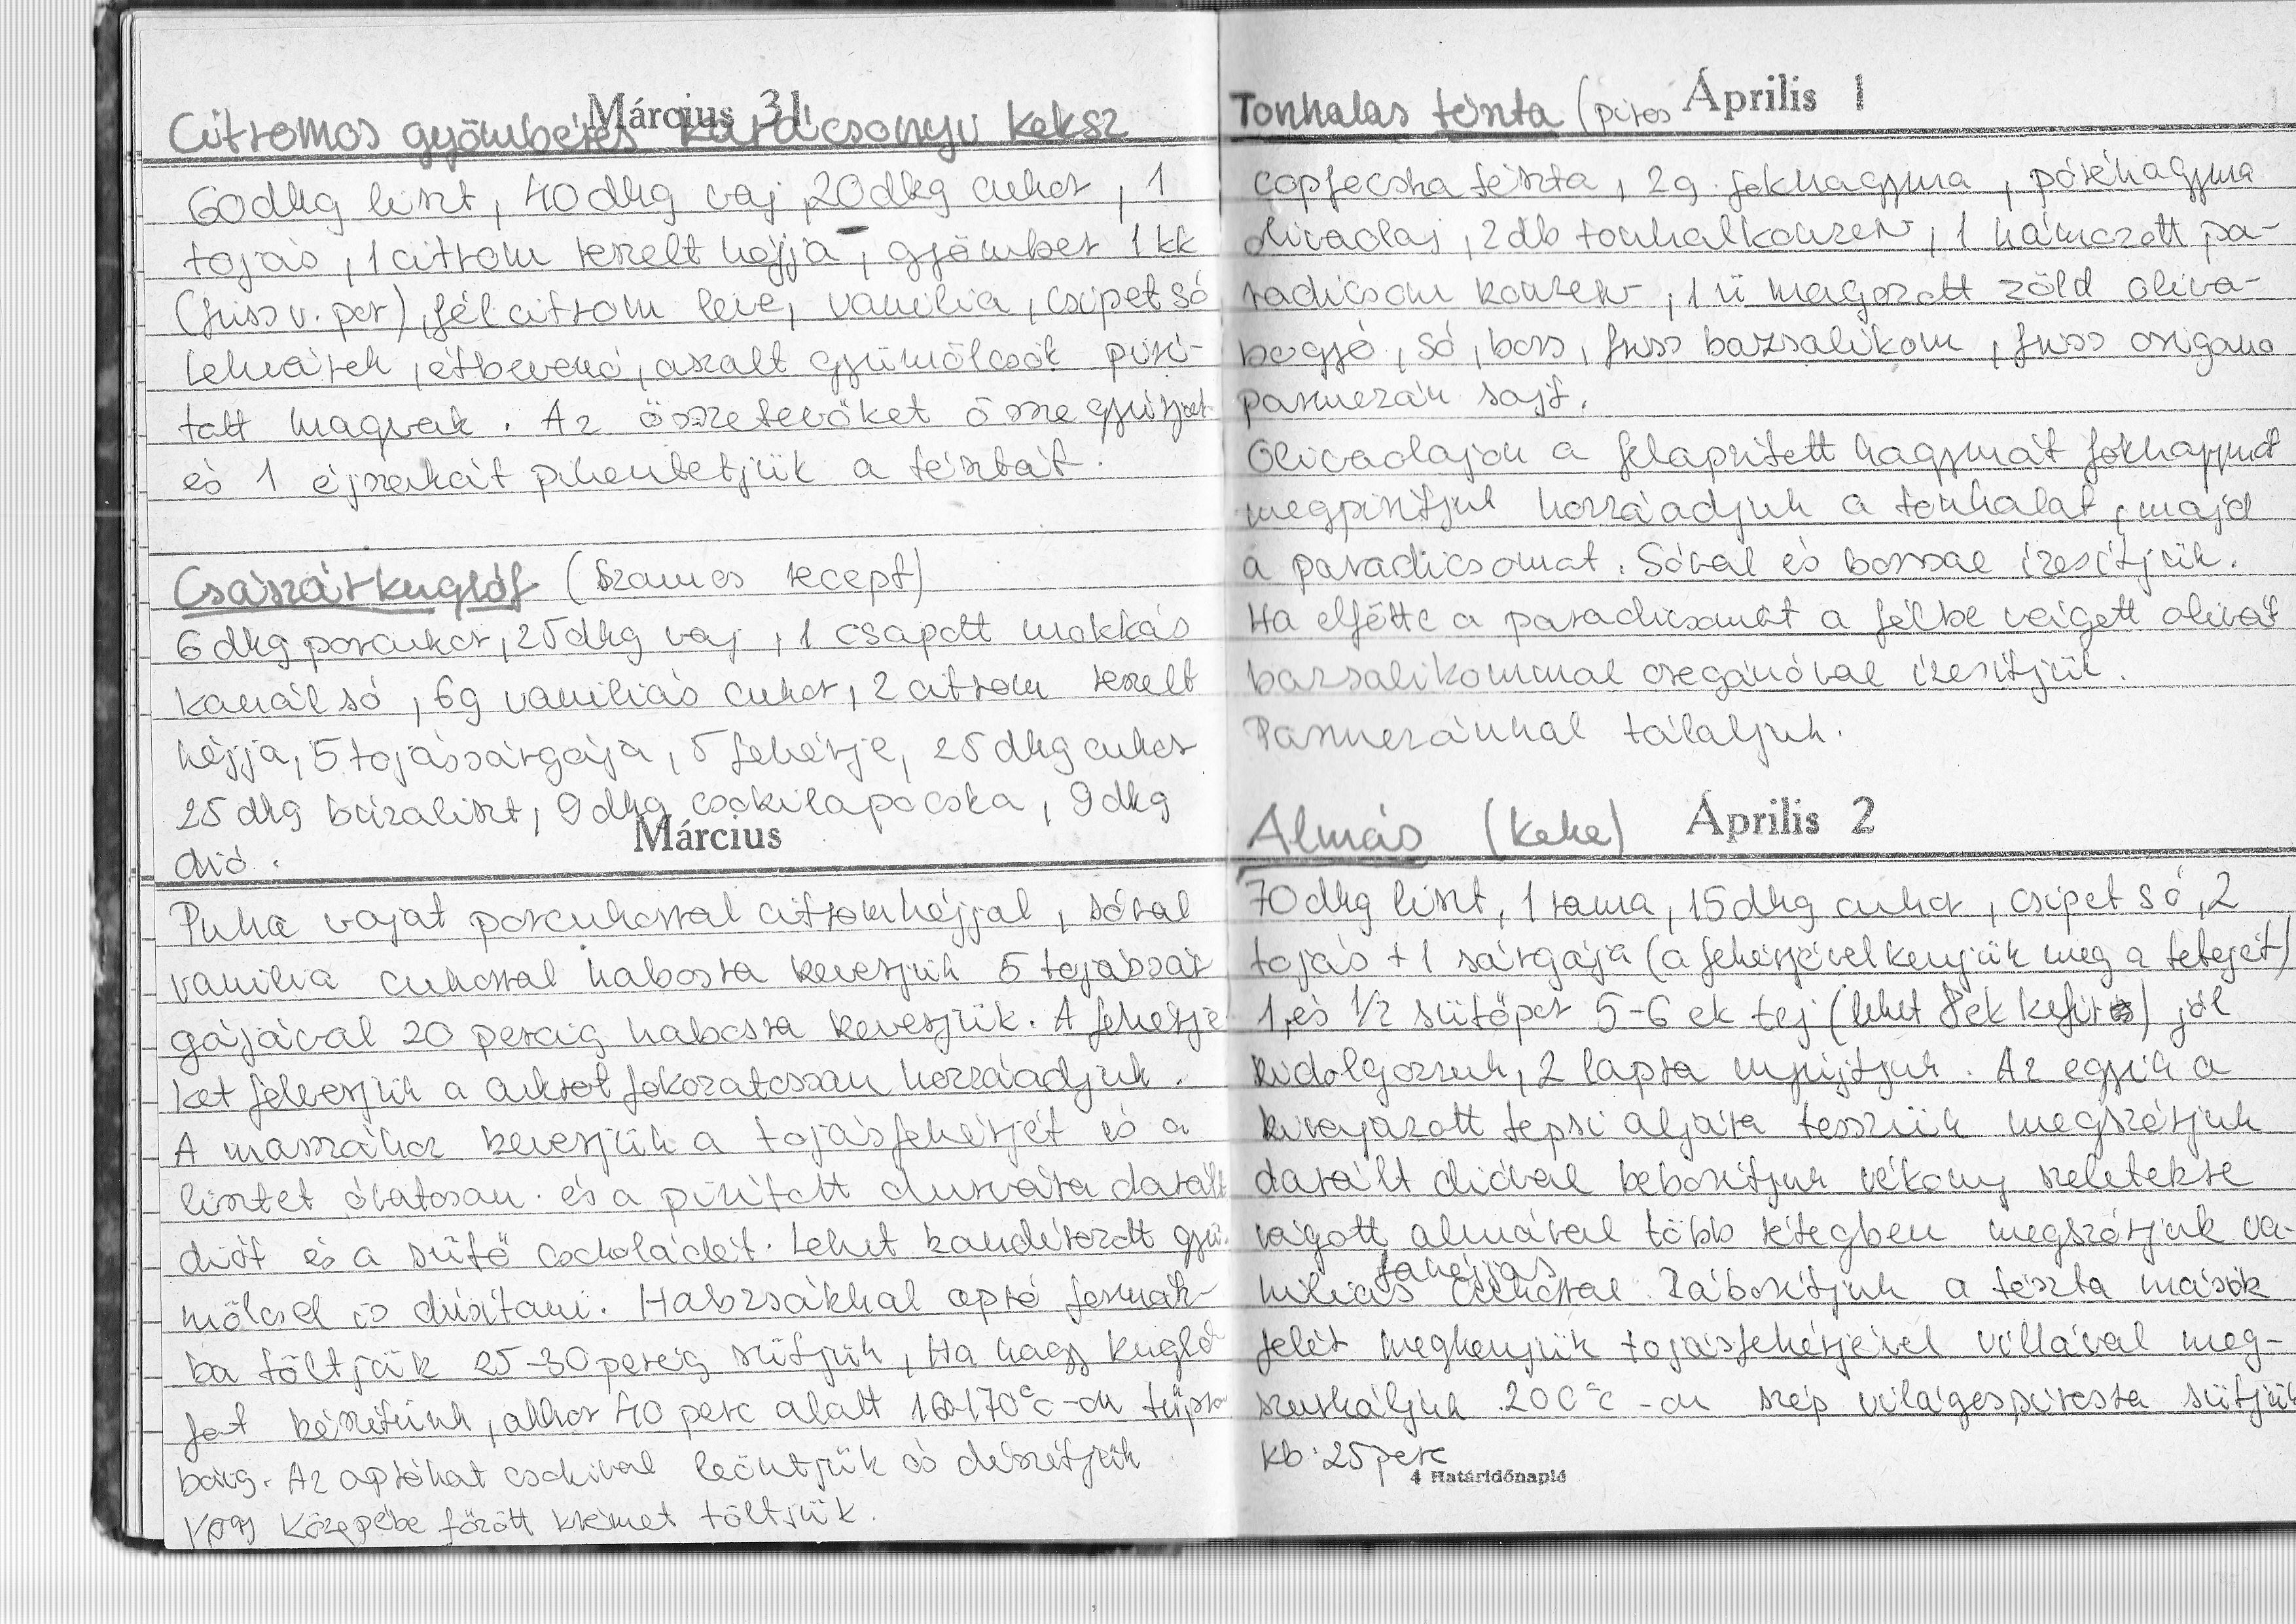 Március 31.
Citromos gyömbéres karácsonyi keksz
60dkg liszt, 40dkg vaj, 20dkg cukor, 1
tojás, 1 citrom reszelt hajja, gyömbér 1kk
(friss v. por), fél citrom leve, vanilia, csipet só
lekvárok, étbevonó, aszalt gyümölcsök piri-
tott magvak. Az összetevőket összegyúrjuk
és 1 éjszakát pihentetjük a tésztát.
Császárkuglóf (Szamos recept)
6dkg porcukor, 25dkg vaj, 1 csapott mokkás
kanál só, 6g vaniliás cukor, 2 citrom reszelt
héjja, 5 tojássárgája, 5 fehérje, 25dkg cukor
25dkg búzaliszt, 9dkg csokilapocska, 9dkg
Március
dió.
Puha vajat porcukorral citromhéjjal, sóval
vanilia cukorral habosra keverjük 5 tojássár
gájával 20 percig habosra keverjük. A fehérje
ket felverjük a cukrot fokozatosan hozzáadjuk.
A masszához keverjük a tojásfehérjét és a
lisztet óvatosan. és a piritott durvára darált
diót és a sütő csokoládét. Lehet kandirozott gyü-
mölcsel is dúsitani. Habzsákkal apró formák-
ba töltjük 25-30 percig sütjük, Ha nagy kugló
fot készitünk, akkor 40 perc alatt 160-170°c-on tűpró
báig. Az aprókat csokival leöntjük és díszitjük
vagy közepébe főzött krémet töltjük.
Április 1
Tonhalas tészta (piros
copfocska tészta, 2g. fokhagyma, póréhagyma
olivaolaj, 2db tonhalkonzerv, 1 hámozott pa-
radicsom konzerv, 1ü magozott zöld oliva-
bogyó, só, bors, friss bazsalikom, friss origano
parmezán sajt.
Olivaolajon a felapritott hagymát fokhagymát
megpiritjuk hozzáadjuk a tonhalat, majd
a paradicsomot. Sóval és borssal izesítjük.
Ha elfőtte a paradicsomot a félbe vágott olivát
bazsalikommal oregánóval izesitjük.
Parmezánnal tálaljuk.
Április 2
Almás (Keke)
70dkg liszt, 1 rama, 15dkg cukor, csipet só, 2
tojás + 1 sárgája (a fehérjével kenjük meg a tetejét)
1, és 1/2 sütőpor 5-6 ek tej (lehet 8ek kefir is) jól
kidolgozzuk, 2 lapra nyújtjuk. Az egyik a
kivajazott tepsi aljára tesszük megszórjuk
darált dióval beboritjuk vékony szeletekre
vágott almával több rétegben megszórjuk va-
fahéjjas
niliás cukorral. Ráboritjuk a tészta másik
felét megkenjük tojásfehérjével villával meg-
szurkáljuk 200°c-on szép világospirosra sütjük
kb. 25 perc
4 Határidőnapló